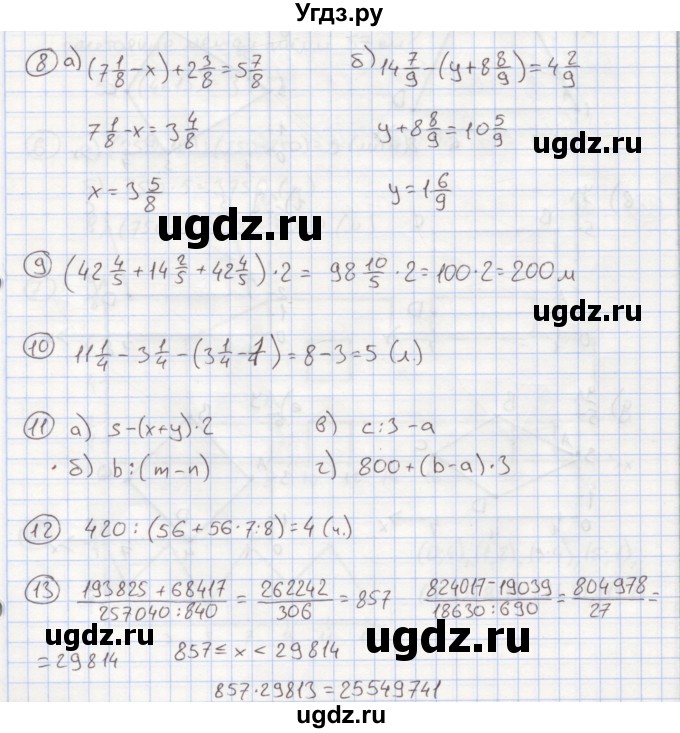 Угдз.ру
8 а) (7 1/8 - x) + 2 3/8 = 5 7/8 б) 14 7/9 - (y + 8 8/9) = 4 2/9
7 1/8 - x = 3 4/8 y + 8 8/9 = 10 5/9
ugdz.ru
x = 3 5/8 y = 1 6/9
ugdz.ru ugdz.ru
9 (42 4/5 + 14 2/5 + 42 4/5) · 2 = 98 10/5 · 2 = 100 · 2 = 200 м
ugdz.ru
10 11 1/4 - 3 1/4 - (3 1/4 - 1/4) = 8 - 3 = 5 (л.)
11 а) s - (x + y) · 2 в) c : 3 - a
· б) b : (m - n) г) 800 + (b - a) · 3
ugdz.ru
12 420 : (56 + 56 · 7 : 8) = 4 (ч.)
13 193825 + 68417 / 257040 : 840 = 262242 / 306 = 857 824017 - 19039 / 18630 : 690 = 804978 / 27 =
ugdz.ru ugdz.ru
= 29814 857 ≤ x < 29814
ugdz.ru
857 · 29813 = 25549741
ugdz.ru